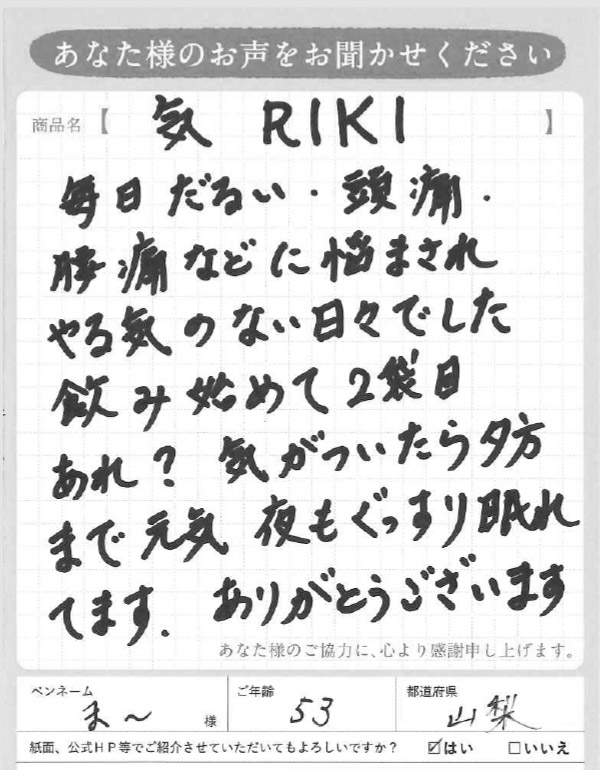 あなた様のお声をお聞かせください
商品名【 気 RIKI 】
毎日だるい・頭痛・
腰痛などに悩まされ
やる気のない日々でした
飲み始めて2袋目
あれ? 気がついたら夕方
まで元気 夜もぐっすり眠れ
てます. ありがとうございます
あなた様のご協力に、心より感謝申し上げます。
ペンネーム ま〜 様 ご年齢 53 都道府県 山梨
紙面、公式HP等でご紹介させていただいてもよろしいですか? ☑はい □いいえ